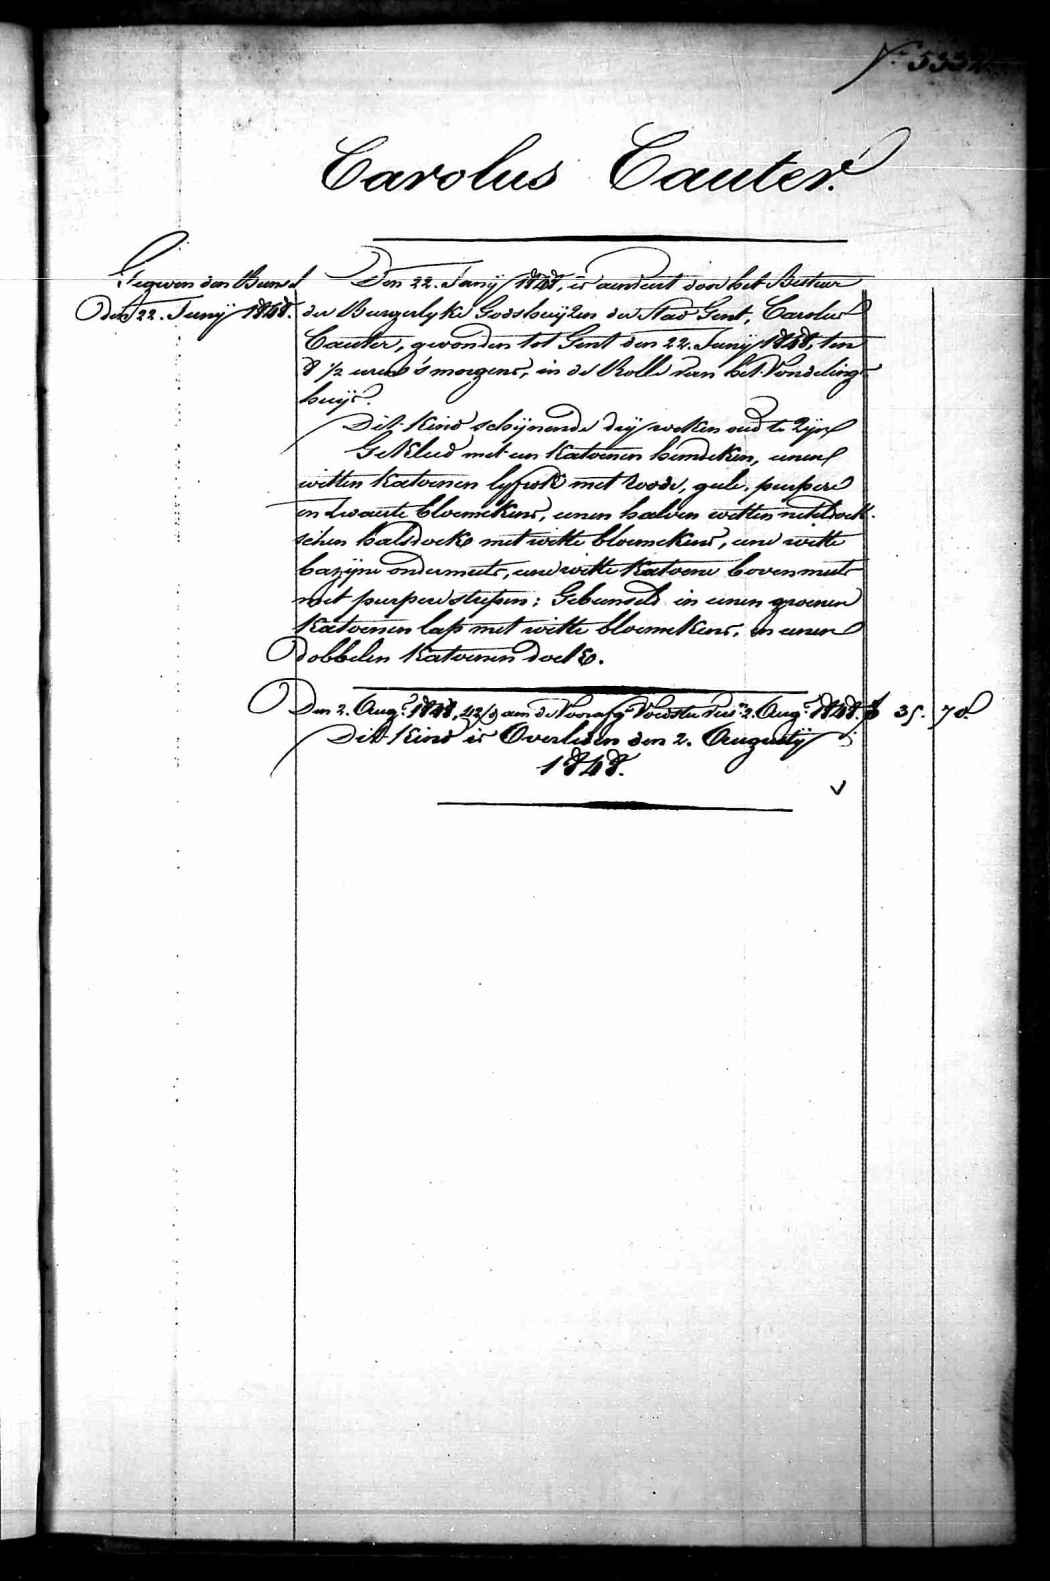 N.° 533
Carolus Cauter.
Gegeven den Bunsel
den 22. Junij 1848.
Den 22. Junij 1848, is aenveert door het Bestuer
der Burgerlyke Godshuijzen der Stad Gent, Carolus
Cauter, gevonden tot Gent den 22. Junij 1848, ten
8 1/2 uren 's morgens, in de Rolle van het Vondeling-
huijs.
Dit Kind schijnende drij weken oud te zijn
Gekleed met een Katoenen hemdeken, eenen
witten Katoenen lyfrok met roode, gele, purpere
en zwarte bloemekens, eenen halven witten neteldoek-
schen halsdoek met witte bloemekens, eene witte
bazijne ondermuts, eene witte Katoene bovenmuts
met purpere strepen; Gebunseld in eenen groenen
Katoenen lap met witte bloemekens, en eenen
dobbelen Katoenen doek.
Den 2. Aug.t 1848, 42/d aen de Voedster 2. Aug.t 1848. 35. 70.
Dit Kind is Overleden den 2. Augustij
1848.